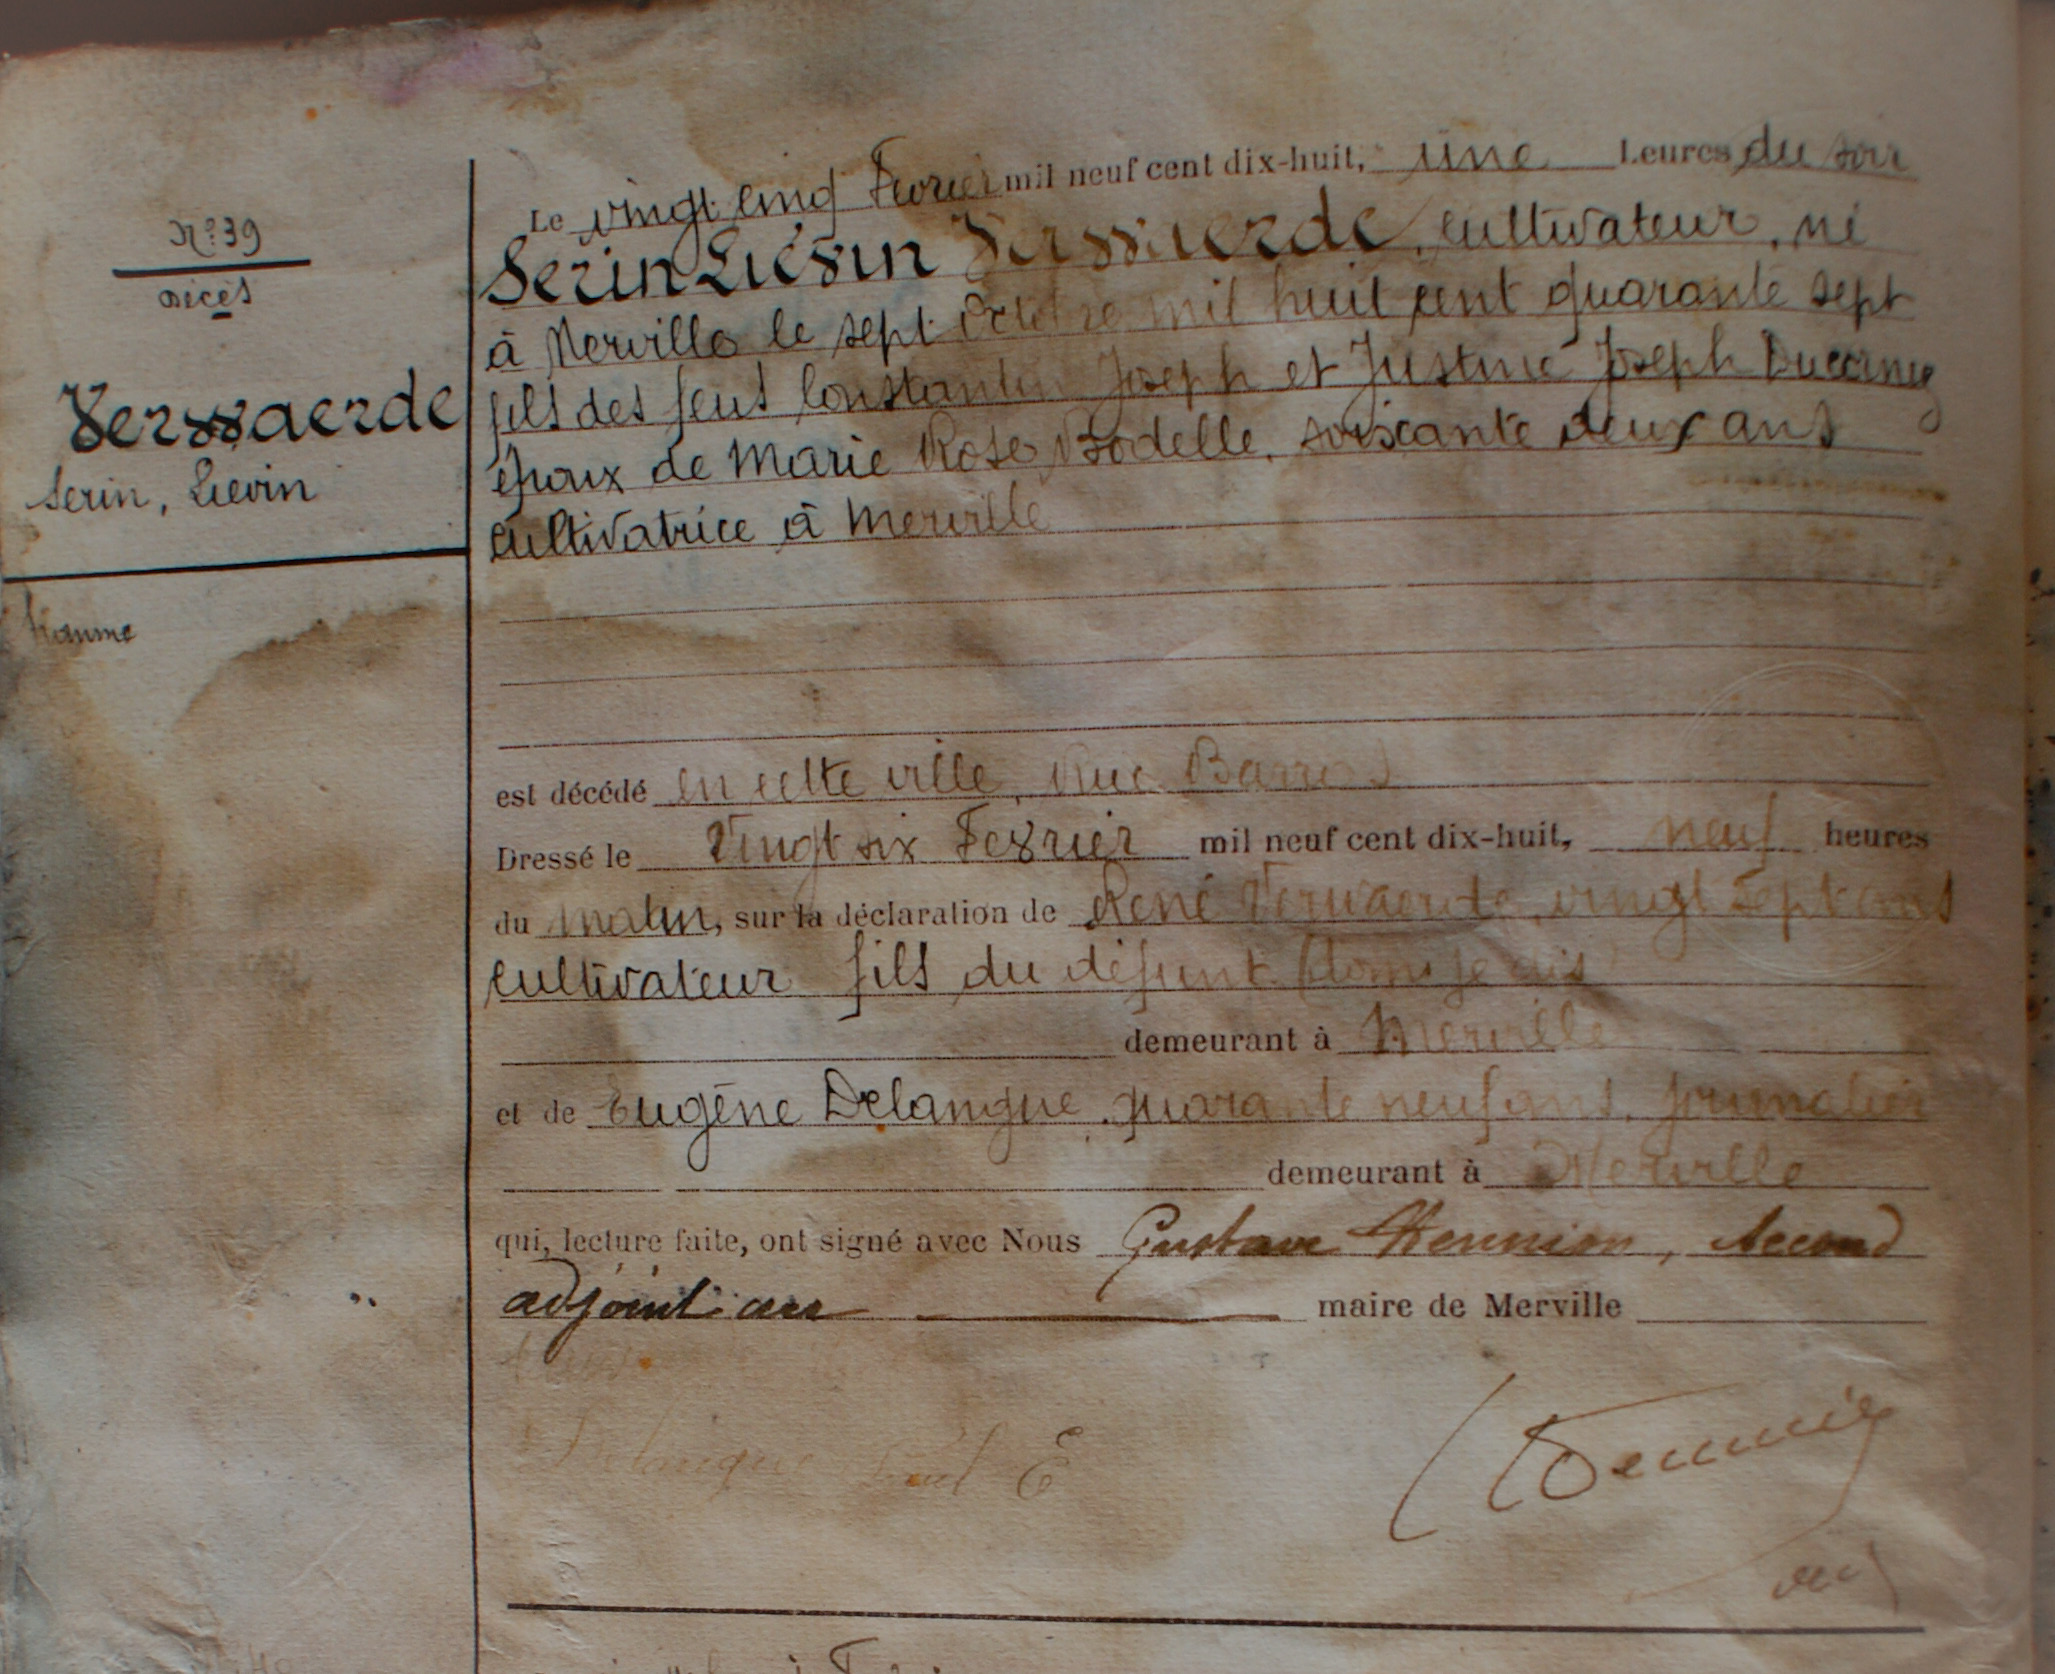 N° 39
Décès
Verwaerde
Serin, Liévin
homme
Le vingt cinq Février mil neuf cent dix-huit, une heures du soir
Serin Liévin Verwaerde, cultivateur, né
à Merville le sept Octobre mil huit cent quarante sept
fils des feus Constantin Joseph et Justine Joseph
époux de Marie Rose Bodelle, soixante deux ans
cultivatrice à Merville
est décédé en cette ville, Rue
Dressé le Vingt six Février mil neuf cent dix-huit, neuf heures
du matin, sur la déclaration de René Verwaerde, vingt sept ans
cultivateur fils du défunt
demeurant à Merville
et de Eugène Delangue, quarante neuf ans, journalier
demeurant à Merville
qui, lecture faite, ont signé avec Nous Gustave Hennion, second
adjoint au maire de Merville
Delangue E
Hennion